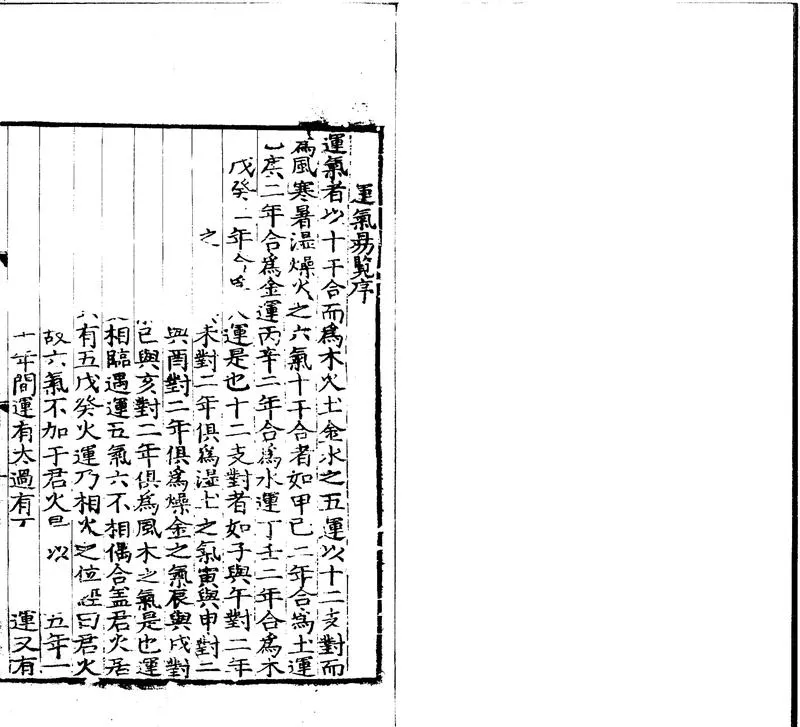 運氣易覧序
運氣者以十干合而爲木火土金水之五運以十二支對而
爲風寒暑湿燥火之六氣十干合者如甲己二年合爲土運
庚二年合爲金運丙辛二年合爲水運丁壬二年合爲木
戊癸二年合爲火運是也十二支對者如子與午對二年
之未對二年俱爲湿土之氣寅與申對二
與酉對二年俱爲燥金之氣辰與戌對
巳與亥對二年俱爲風木之氣是也運
相臨遇運五氣六不相偶合盖君火居
有五戊癸火運乃相火之位經曰君火
故六氣不加于君火 以 五年一
十年間運有太過有 運又有